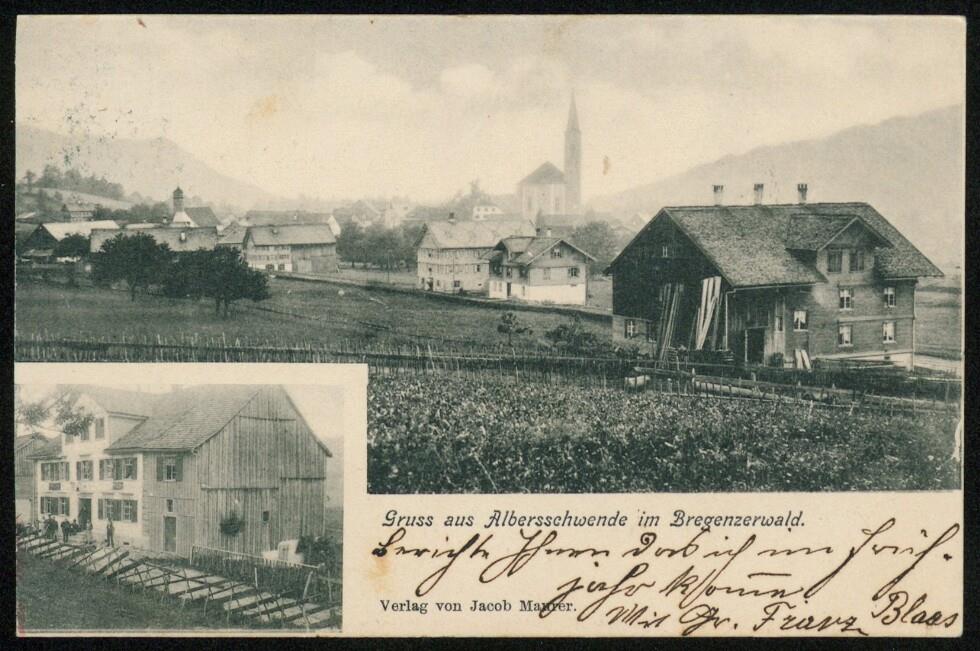 Gruss aus Albersschwende im Bregenzerwald.
berichte Ihnen das ich im früh-
jahr komme
Verlag von Jacob Maurer.
Mit Gr. Franz Blaas